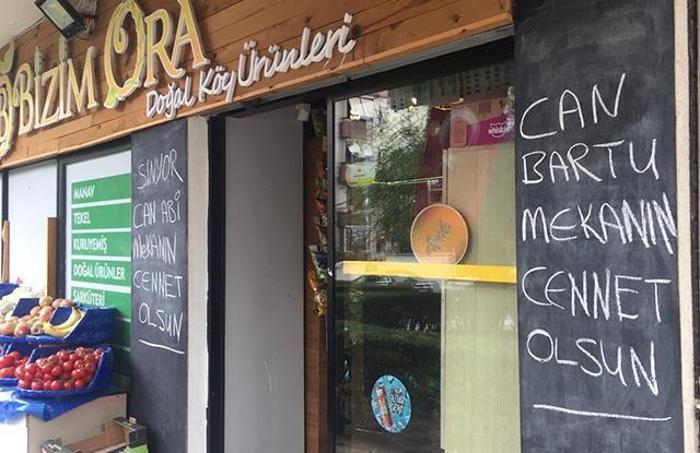 BİZİM ORA
Doğal Köy Ürünleri
SİNYOR
CAN ABİ
MEKANIN
CENNET
OLSUN
MANAV
TEKEL
KURUYEMİŞ
DOĞAL ÜRÜNLER
ŞARKÜTERİ
CAN
BARTU
MEKANIN
CENNET
OLSUN